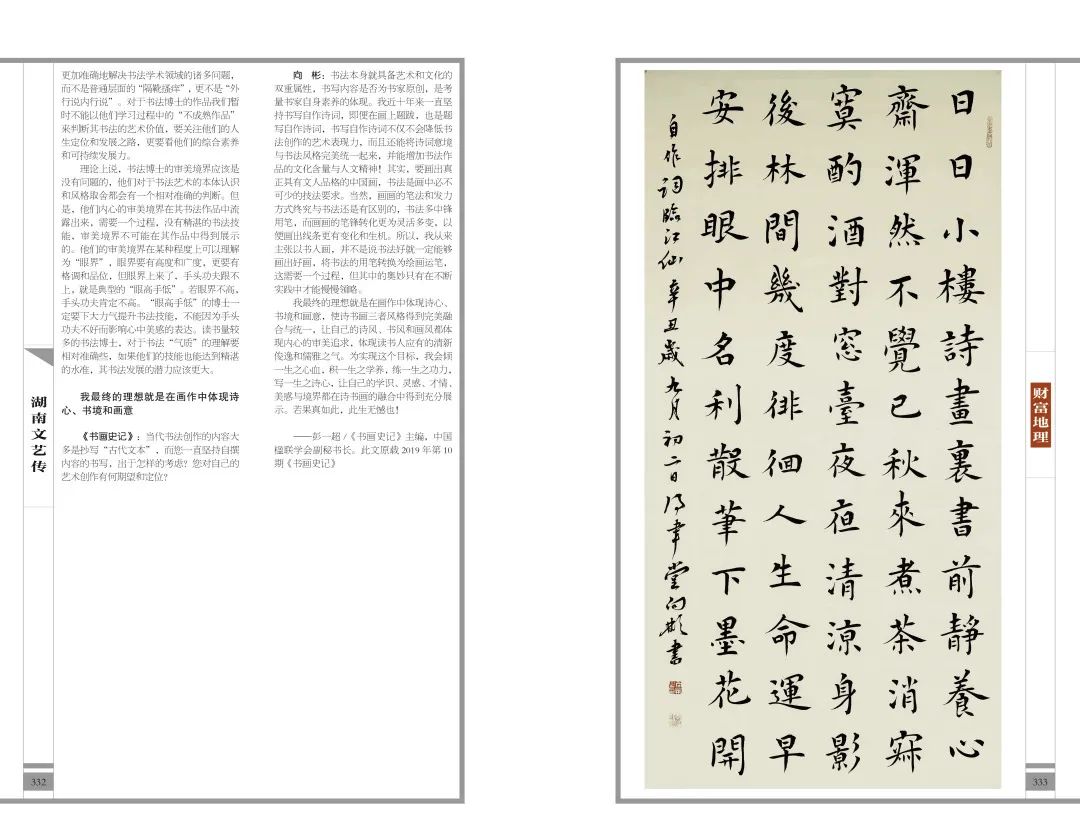 更加准确地解决书法学术领域的诸多问题,
而不是普通层面的“隔靴搔痒”,更不是“外
行说内行说”。对于书法博士的作品我们暂
时不能以他们学习过程中的“不成熟作品”
来判断其书法的艺术价值,要关注他们的人
生定位和发展之路,更要看他们的综合素养
和可持续发展力。
理论上说,书法博士的审美境界应该是
没有问题的,他们对于书法艺术的本体认识
和风格取舍都会有一个相对准确的判断。但
是,他们内心的审美境界在其书法作品中流
露出来,需要一个过程,没有精湛的书法技
能,审美境界不可能在其作品中得到展示
的。他们的审美境界在某种程度上可以理解
为“眼界”,眼界要有高度和广度,更要有
格调和品位,但眼界上来了,手头功夫跟不
上,就是典型的“眼高手低”。若眼界不高,
手头功夫肯定不高。“眼高手低”的博士一
定要下大力气提升书法技能,不能因为手头
功夫不好而影响心中美感的表达。读书量较
多的书法博士,对于书法“气质”的理解要
相对准确些,如果他们的技能也能达到精湛
的水准,其书法发展的潜力应该更大。
我最终的理想就是在画作中体现诗
心、书境和画意
《书画史记》:当代书法创作的内容大
多是抄写“古代文本”,而您一直坚持自撰
内容的书写,出于怎样的考虑?您对自己的
艺术创作有何期望和定位?
向 彬:书法本身就具备艺术和文化的
双重属性,书写内容是否为书家原创,是考
量书家自身素养的体现。我近十年来一直坚
持书写自作诗词,即便在画上题跋,也是题
写自作诗词,书写自作诗词不仅不会降低书
法创作的艺术表现力,而且还能将诗词意境
与书法风格完美统一起来,并能增加书法作
品的文化含量与人文精神!其实,要画出真
正具有文人品格的中国画,书法是画中必不
可少的技法要求。当然,画画的笔法和发力
方式终究与书法还是有区别的,书法多中锋
用笔,而画画的笔锋转化更为灵活多变,以
便画出线条更有变化和生机。所以,我从来
主张以书入画,并不是说书法好就一定能够
画出好画,将书法的用笔转换为绘画运笔,
这需要一个过程,但其中的奥妙只有在不断
实践中才能慢慢领略。
我最终的理想就是在画作中体现诗心、
书境和画意,使诗书画三者风格得到完美融
合与统一,让自己的诗风、书风和画风都体
现内心的审美追求,体现读书人应有的清新
俊逸和儒雅之气。为实现这个目标,我会倾
一生之心血,积一生之学养,练一生之功力,
写一生之诗心,让自己的学识、灵感、才情、
美感与境界都在诗书画的融合中得到充分展
示。若果真如此,此生无憾也!
——彭一超/《书画史记》主编,中国
楹联学会副秘书长。此文原载 2019 年第 10
期《书画史记》
湖南文艺传
332
日日小樓詩畫裏書前靜養心
齋渾然不覺已秋來煮茶消寂
寞酌酒對窓臺夜夜清涼身影
後林間幾度徘徊人生命運早
安排眼中名利散筆下墨花開
自作词臨江仙辛丑歲九月初二日得聿堂向彬書
财富地理
333